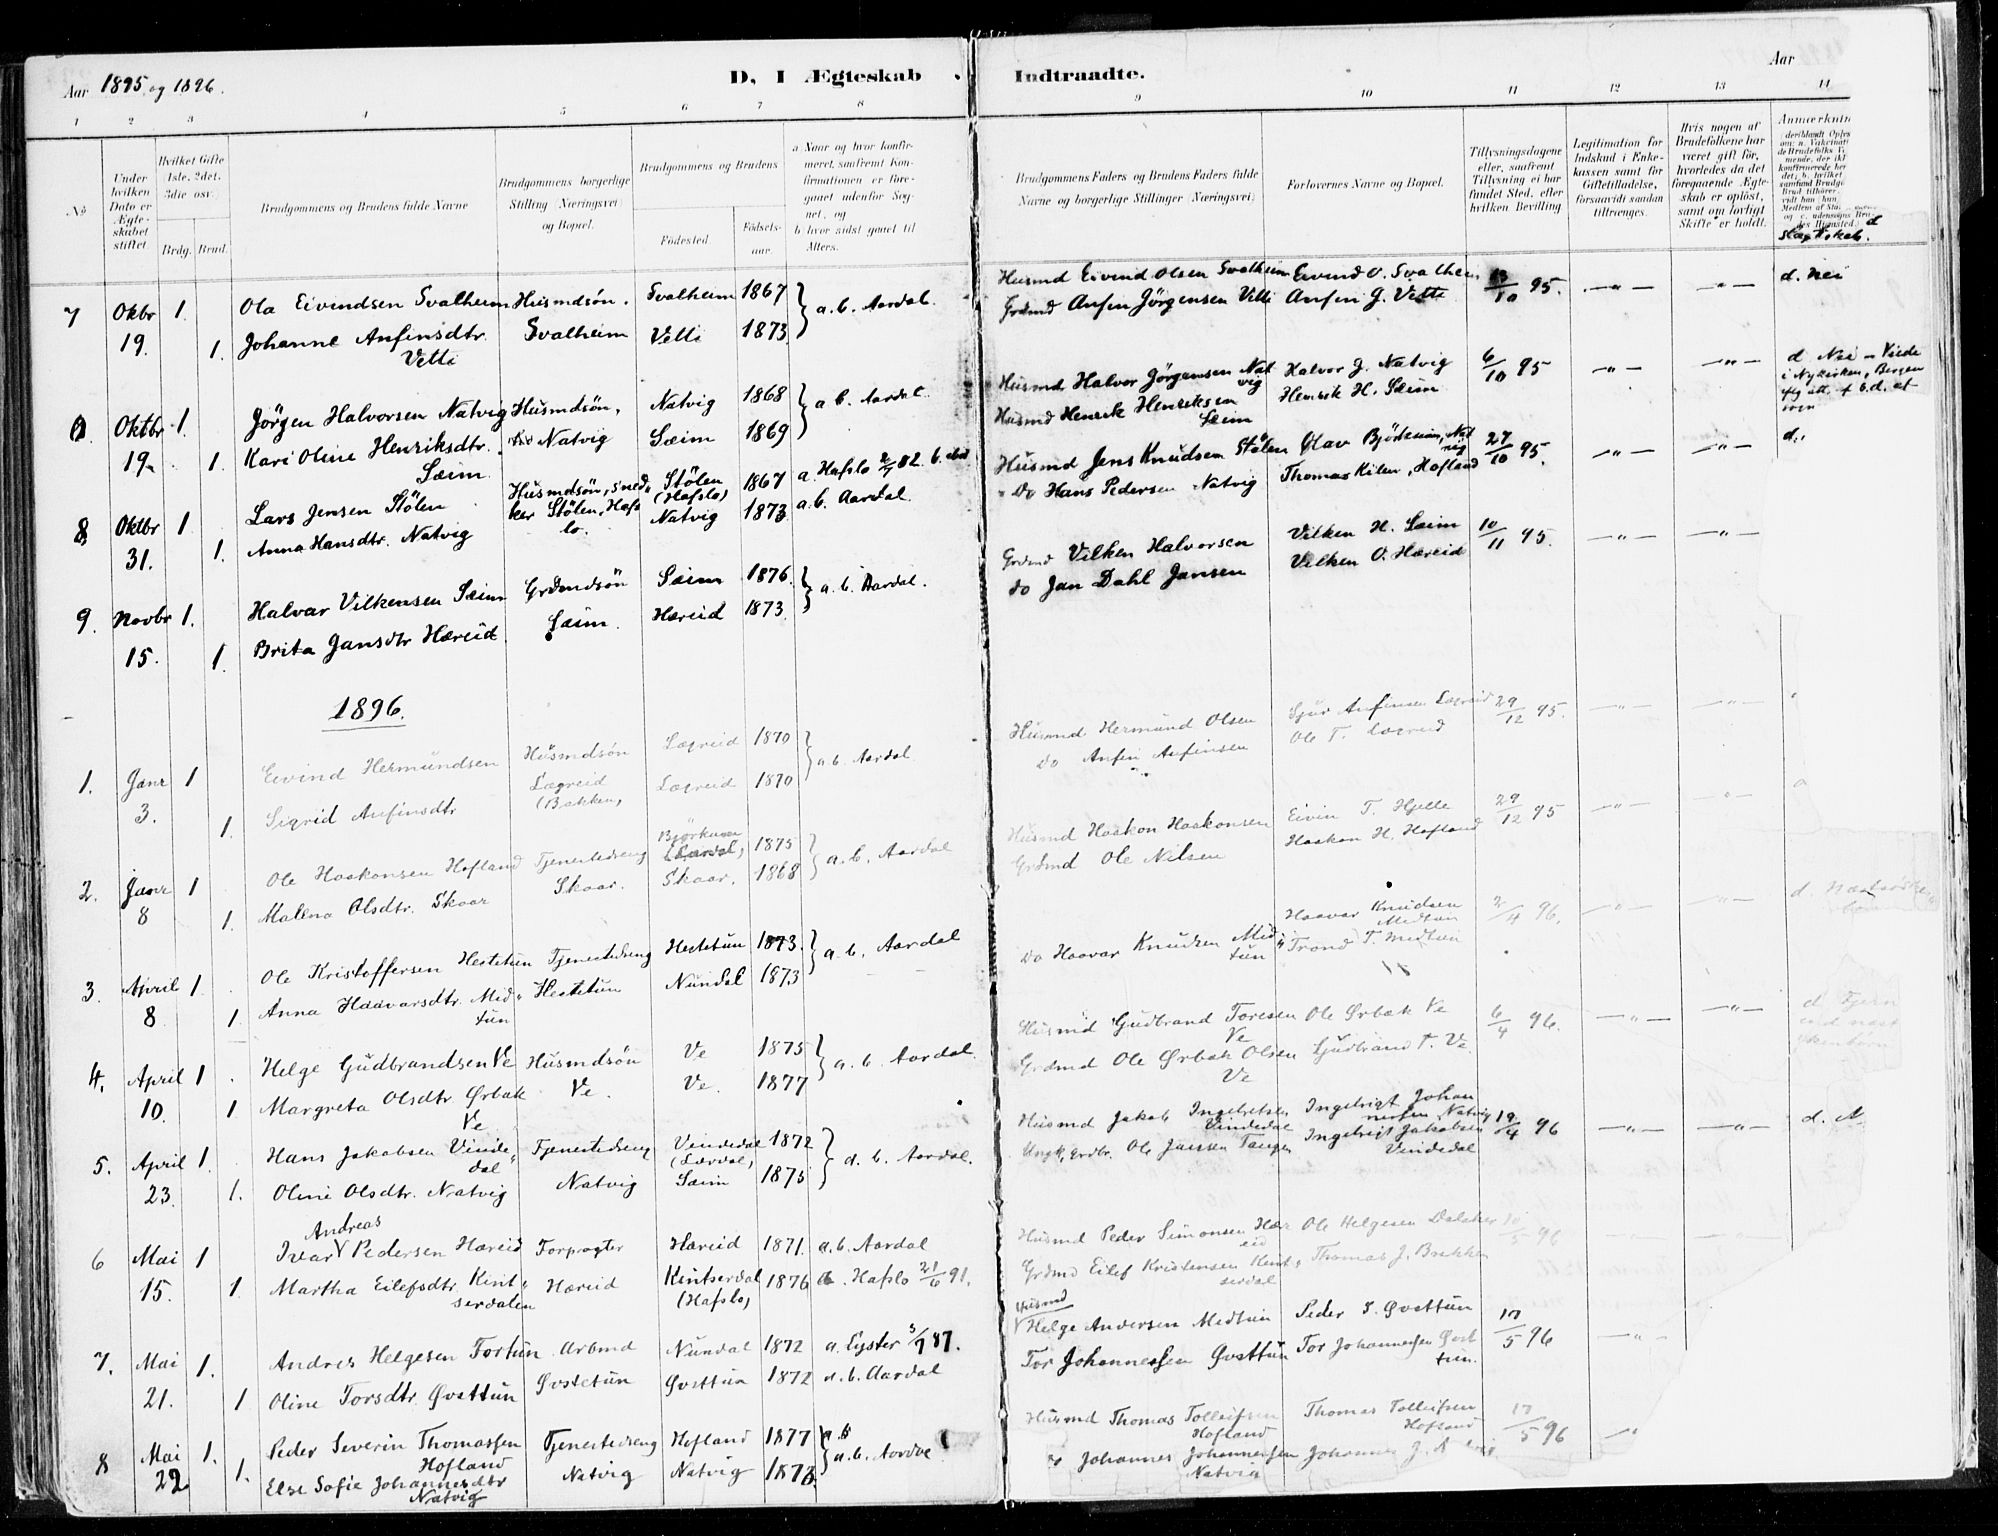 Aar 1895 og 1896.
D, I Ægteskab Indtraadte.
Aar
1 2 3 4 5 6 7 8 9 10 11 12 13 14
No
Under hvilken Dato er Ægteskabet stiftet.
Hvilket Gifte 1ste, 2det, 3die osv.
Brdg. Brud.
Brudgommens og Brudens fulde Navne
Brudgommens borgerlige Stilling (Næringsvei) og Bopæl.
Brudgommens og Brudens
Fødested.
Fødselsaar.
a Naar og hvor konfirmeret, saafremt Konfirmationen er foregaaet udenfor Sognet, og
b hvor sidst gaaet til Alters.
Brudgommens Faders og Brudens Faders fulde Navne og borgerlige Stillinger (Næringsvei)
Forlovernes Navne og Bopæl.
Tillysningsdagene eller, saafremt Tillysning ei har fundet Sted, efter hvilken Bevilling
Legitimation for Indskud i Enkekassen samt for Giftetilladelse, forsaavidt saadan tiltrænges.
Hvis nogen af Brudefolkene har været gift før, hvorledes da det foregaaende Ægteskab er opløst, samt om lovligt Skifte er holdt.
d Slægtskab.
7 Oktbr 19. 1. Ola Eivindsen Svalheim Husmdsøn. Svalheim 1867 a. b. Aardal. Husmd Eivind Olsen Svalheim Eivind O. Svalheim 13/10 95. —"— —"— d. Nei
1. Johanne Anfinsdtr. Vetti Svalheim Vetti 1873 Grdmd Anfin Jörgensen Vetti Anfin J. Vetti
Oktbr 19. 1. Jörgen Halvorsen Natvig Husmdsøn, Natvig 1868 a b. Aardal. Husmd Halvor Jörgensen Natvig Halvor J. Natvig 6/10 95 —"— —"— d. Nei – Viede i Nykirken, Bergen
1. Kari Oline Henriksdtr. Sæim Natvig Sæim 1869 Husmd Henrik Henriksen Sæim Henrik H. Sæim
8. Oktbr 31. 1. Lars Jensen Stölen Husmdsøn, snedker Stölen, Hafslo. Stölen (Hafslo) 1867 a. Hafslo 2/7 82 Husmd Jens Knudsen Stölen Olav Björkum, Natvig 27/10 95. —"— —"— d.
1. Anna Hansdtr. Natvig Natvig 1873 a. b. Aardal. Do Hans Pedersen Natvig Thomas Kilen, Hofland
9. Novbr 15. 1. Halvar Vilkensen Sæim Grdmdsøn Sæim. Sæim 1876. a. b. Aardal. Grdmd Vilken Halvorsen Vilken H. Sæim 10/11 95. —"— —"—
1. Brita Jansdtr Hæreid. Hæreid 1873. do Jan Dahl Jansen Vilken O. Hæreid
1896.
1. Janr 3. 1 Eivind Hermundsen Husmdsøn Lægreid (Bakken) Lægreid 1870 a. b. Aardal Husmd Hermund Olsen Sjur Anfinsen Lægreid 29/12 95. —"— —"—
1. Sigrid Anfinsdtr Lægreid 1870 do Anfin Anfinsen Ole T. Lægreid
2. Janr 8 1 Ole Haakonsen Hofland Tjenestedreng Skaar. 1875 a. b. Aardal Husmd Haakon Haakonsen Eivin T. Hjelle 29/12 95 —"— —"—
1. Malena Olsdtr. Skaar Skaar. 1868 Grdmd Ole Nilsen Haakon H. Hofland
3. April 8 1. Ole Kristoffersen Hestetun Tjenestedreng Hestetun Hestetun 1873. a. b. Aardal Haavar Knudsen Midtun 2/4 96. —"— —"— d.
1. Anna Haavarsdtr. Midtun Nundal 1873 do Haavar Knudsen Midtun Trond T. Midtun
4. April 10. 1 Helge Gudbrandsen Ve Husmdsøn Ve. Ve 1875 a. b. Aardal. Husmd Gudbrand Toresen Ve Ole Ørbæk Ve 6/4 96. —"— —"— d.
1 Margreta Olsdtr Ørbæk Ve Ve. 1877 Grdmd Ole Ørbæk Olsen Ve Gudbrand T. Ve.
5. April 23. 1. Hans Jakobsen Vindedal Tjenestedreng Natvig Vindedal (Lærdal) 1872 a. b. Aardal. Husmd Jakob Ingebretsen Vindedal 19/4 96 —"— —"— d.
1. Oline Olsdtr. Natvig Sæim 1875 Ole Jansen Tangen Ingebrigt Jakobsen Vindedal
6 Mai 15. 1 Ivar Andreas Pedersen Hæreid Forpagter Hæreid Hæreid 1871. a. b. Aardal Husmd Peder Simonsen Hæreid Ole Helgesen Dalaker 10/5 96
1. Martha Eilefsdtr. Kintserdalen Kintserdal (Hafslo) 1876 Hafslo 21/6 91. Grdmd Eilef Kristensen Kintserdal Thomas J. Brekken
7. Mai 21. 1. Andres Helgesen Fortun Arbmd Qvstetun Nundal 1872 a. Lyster 3/7 87. Husmd Helge Andersen Midtun Peder T. Qvsttun 17/5 96 —"—
1 Oline Torsdtr Qvsttun Qvsttun 1872 a. b. Aardal Tor Johannessen Qvsttun Tor Johannessen Qvsttun.
8 Mai 22 1. Peder Severin Thomassen Hofland Tjenestedreng Natvig Hofland 1877 a. b. Aardal Husmd Thomas Tolleifsen Hofland Thomas Tolleifsen Hofland 17/5 96
1. Else Sofie Johannesdtr Natvig Natvig 1873. Johannes Johannessen Natvig